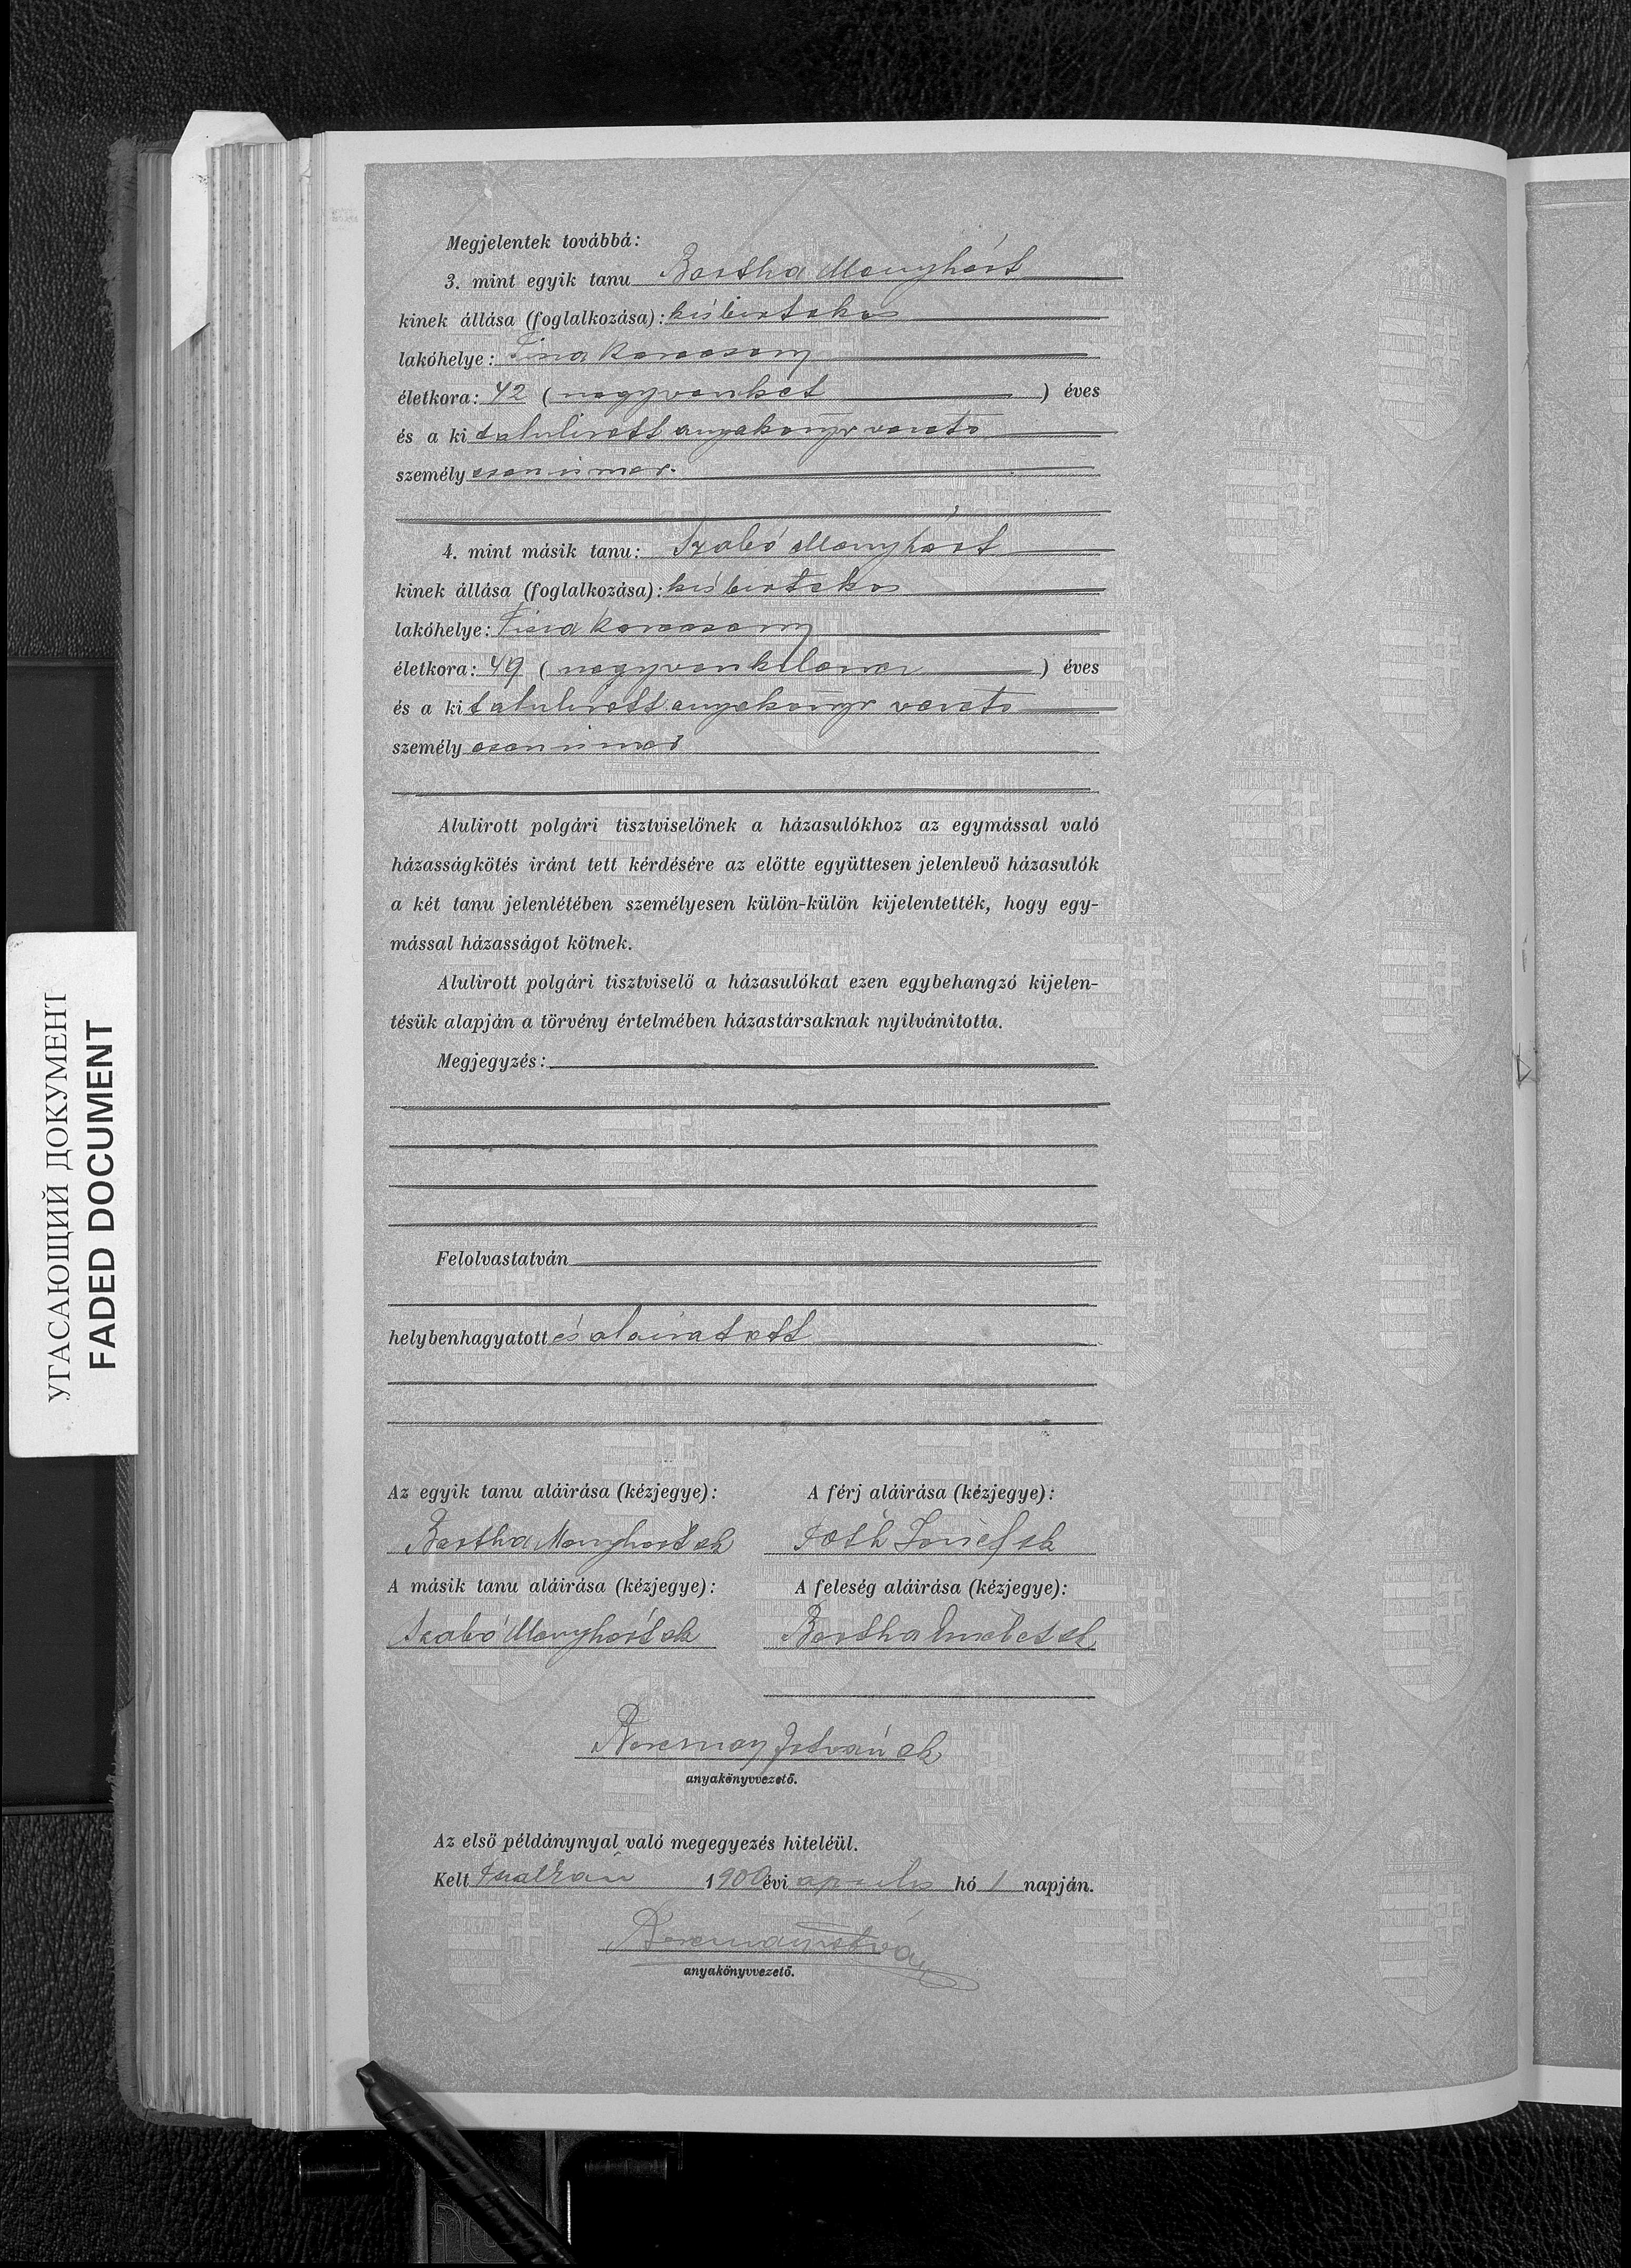 Megjelentek továbbá:
3. mint egyik tanu Bartha Menyhért
kinek állása (foglalkozása): kisbirtokos
lakóhelye: Tisza Karacsony
életkora: 42 (negyvenkét ) éves
és a kit alulirott anyakönyvvezető
személyesen ismer.
4. mint másik tanu: Szabó Menyhért
kinek állása (foglalkozása): kisbirtokos
lakóhelye: Tisza Karacsony
életkora: 49 (negyvenkilencz ) éves
és a kit alulirott anyakönyvvezető
személyesen ismer
Alulirott polgári tisztviselőnek a házasulókhoz az egymással való
házasságkötés iránt tett kérdésére az előtte együttesen jelenlevő házasulók
a két tanu jelenlétében személyesen külön-külön kijelentették, hogy egy-
mással házasságot kötnek.
Alulirott polgári tisztviselő a házasulókat ezen egybehangzó kijelen-
tésük alapján a törvény értelmében házastársaknak nyilvánitotta.
Megjegyzés:
Felolvastatván
helybenhagyatott és aláiratott
Az egyik tanu aláirása (kézjegye): A férj aláirása (kézjegye):
Bartha Menyhért sk Tóth József sk
A másik tanu aláirása (kézjegye): A feleség aláirása (kézjegye):
Szabó Menyhért sk Bartha Erzsébet sk
István sk
anyakönyvvezető.
Az első példánynyal való megegyezés hiteléül.
Kelt 1900 évi aprilis hó 1 napján.
István
anyakönyvvezető.
УГАСАЮЩИЙ ДОКУМЕНТ
FADED DOCUMENT